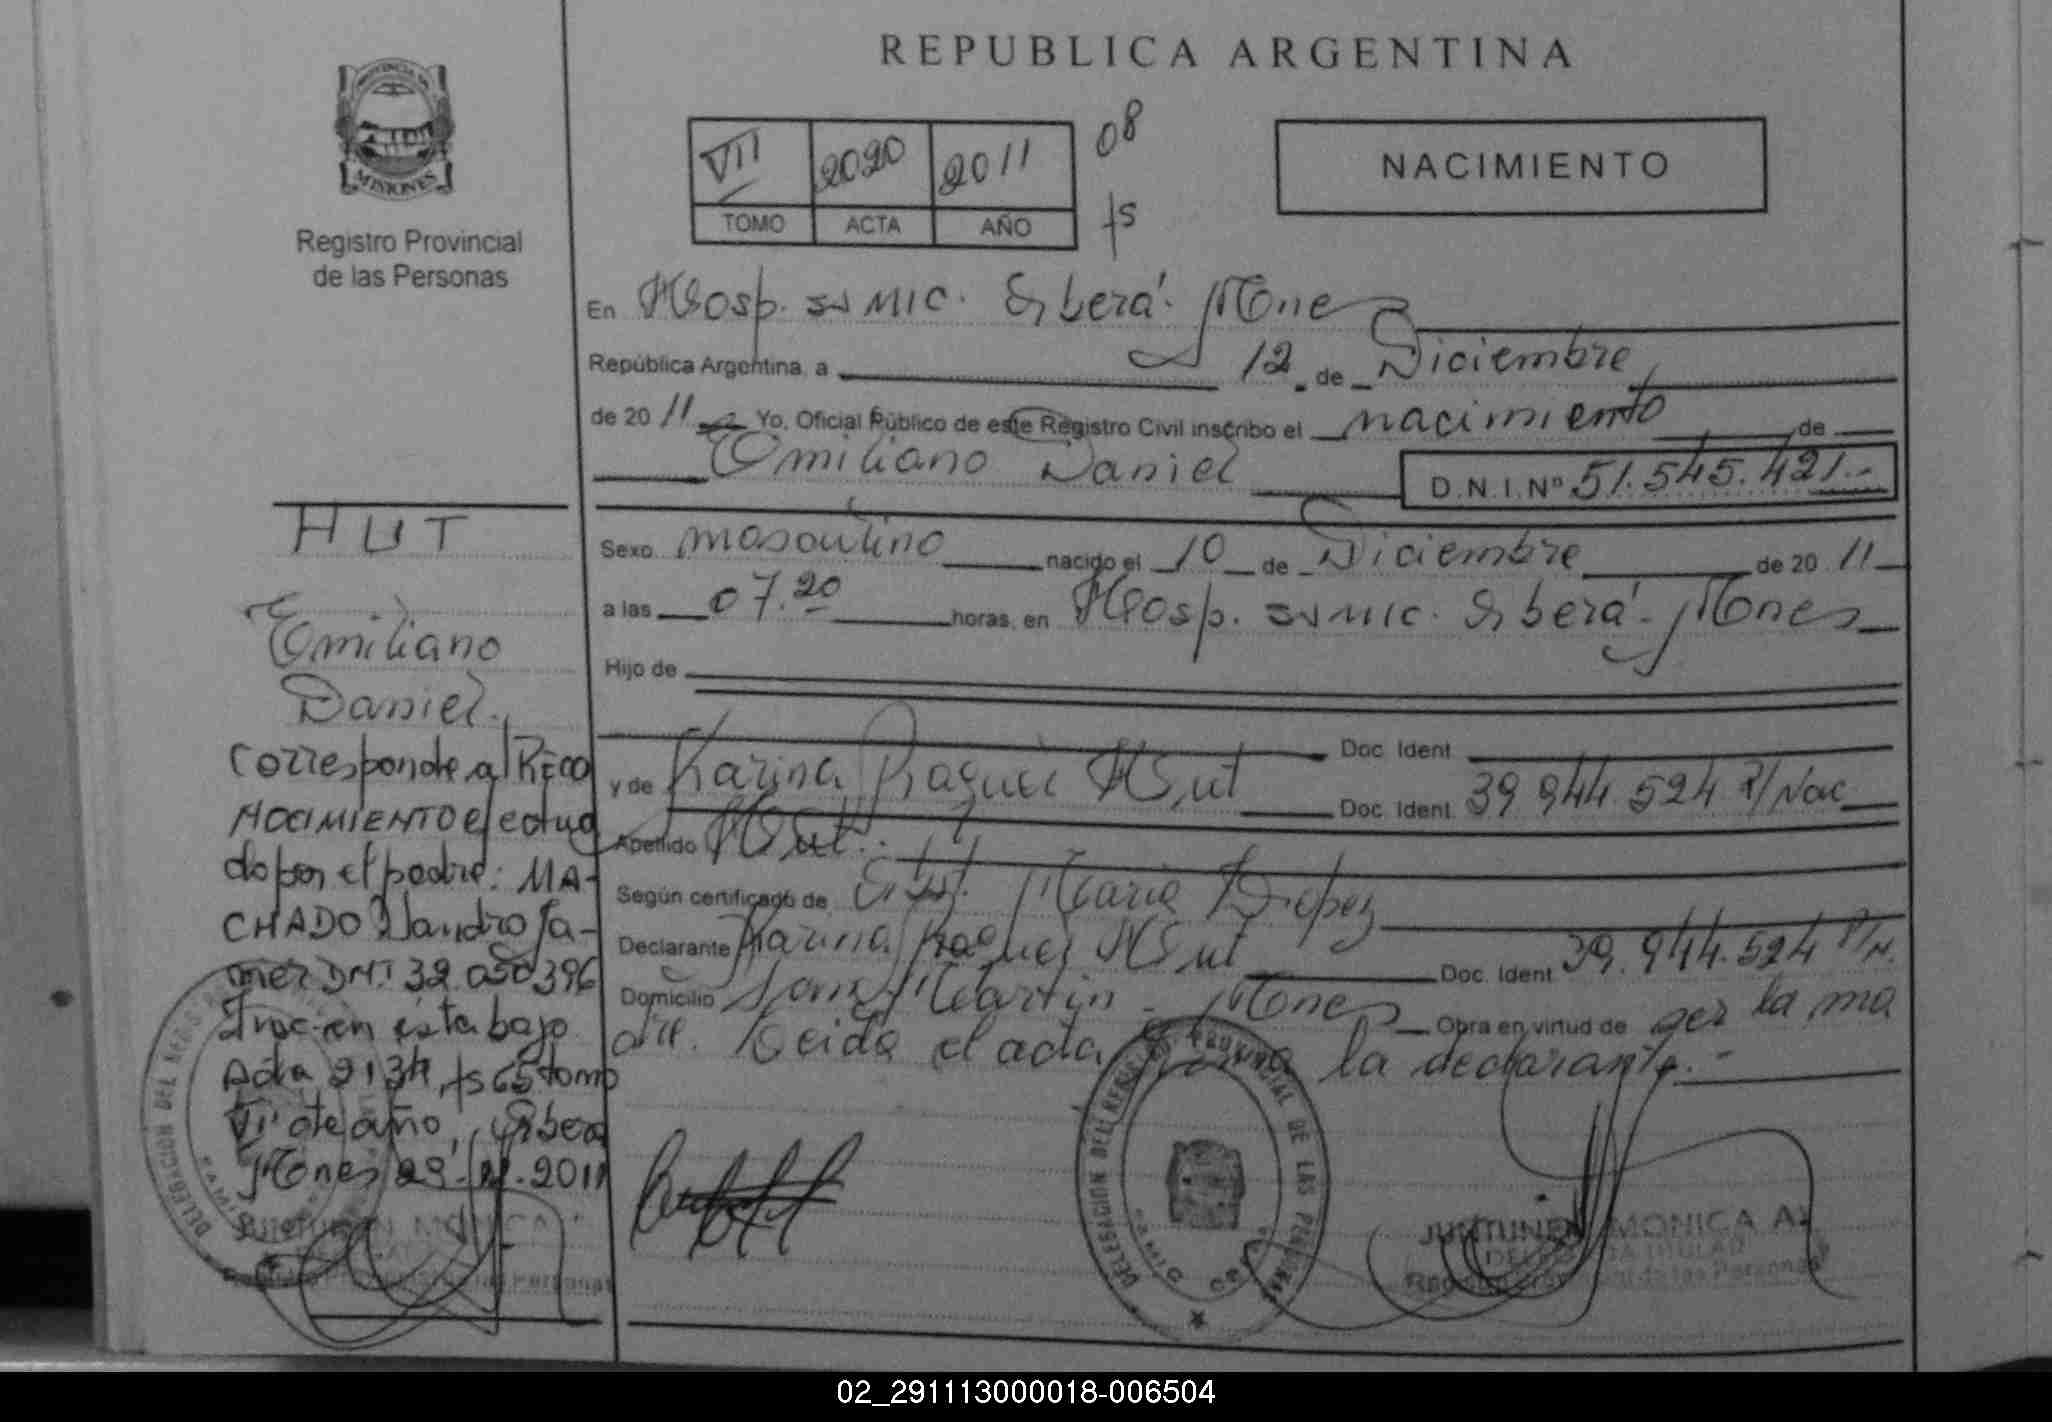 REPUBLICA ARGENTINA
PROVINCIA DE
MISIONES
Registro Provincial
de las Personas
VII 2020 2011 08
TOMO ACTA AÑO fs
NACIMIENTO
En Hosp. SAMIC. Eberá. Mnes
República Argentina, a 12 de Diciembre
de 2011 Yo, Oficial Público de este Registro Civil inscribo el nacimiento de
Emiliano Daniel D.N.I.Nº 51.545.421.-
Sexo masculino nacido el 10 de Diciembre de 2011
a las 07.20 horas, en Hosp. SAMIC. Eberá. Mnes
Hijo de
Doc. Ident.
y de Karina Raquel Hut Doc. Ident. 39.944.524 P/Nac
Apellido Hut.
Según certificado de Obst. Maria Lopez
Declarante Karina Raquel Hut Doc. Ident. 39.944.524 P/N.
Domicilio San Martin - Mnes Obra en virtud de ser la ma
dre. Leida el acta firma la declarante.-
HUT
Emiliano
Daniel.
Corresponde al RECO
NOCIMIENTO efectua
do por el padre: MA-
CHADO Sandro Ja-
mer DNI. 32.050396
Insc. en esta bajo
Acta 2134, fs 65 tomo
VII de año, Obera
Mnes 29-12-2011
DELEGACION DEL REGISTRO PROVINCIAL DE LAS PERSONAS
JUNTUNEN MONICA A.
DELEGADA TITULAR
Registro Provincial de las Personas
JUNTUNEN MONICA
Registro Provincial de las Personas
02_291113000018-006504